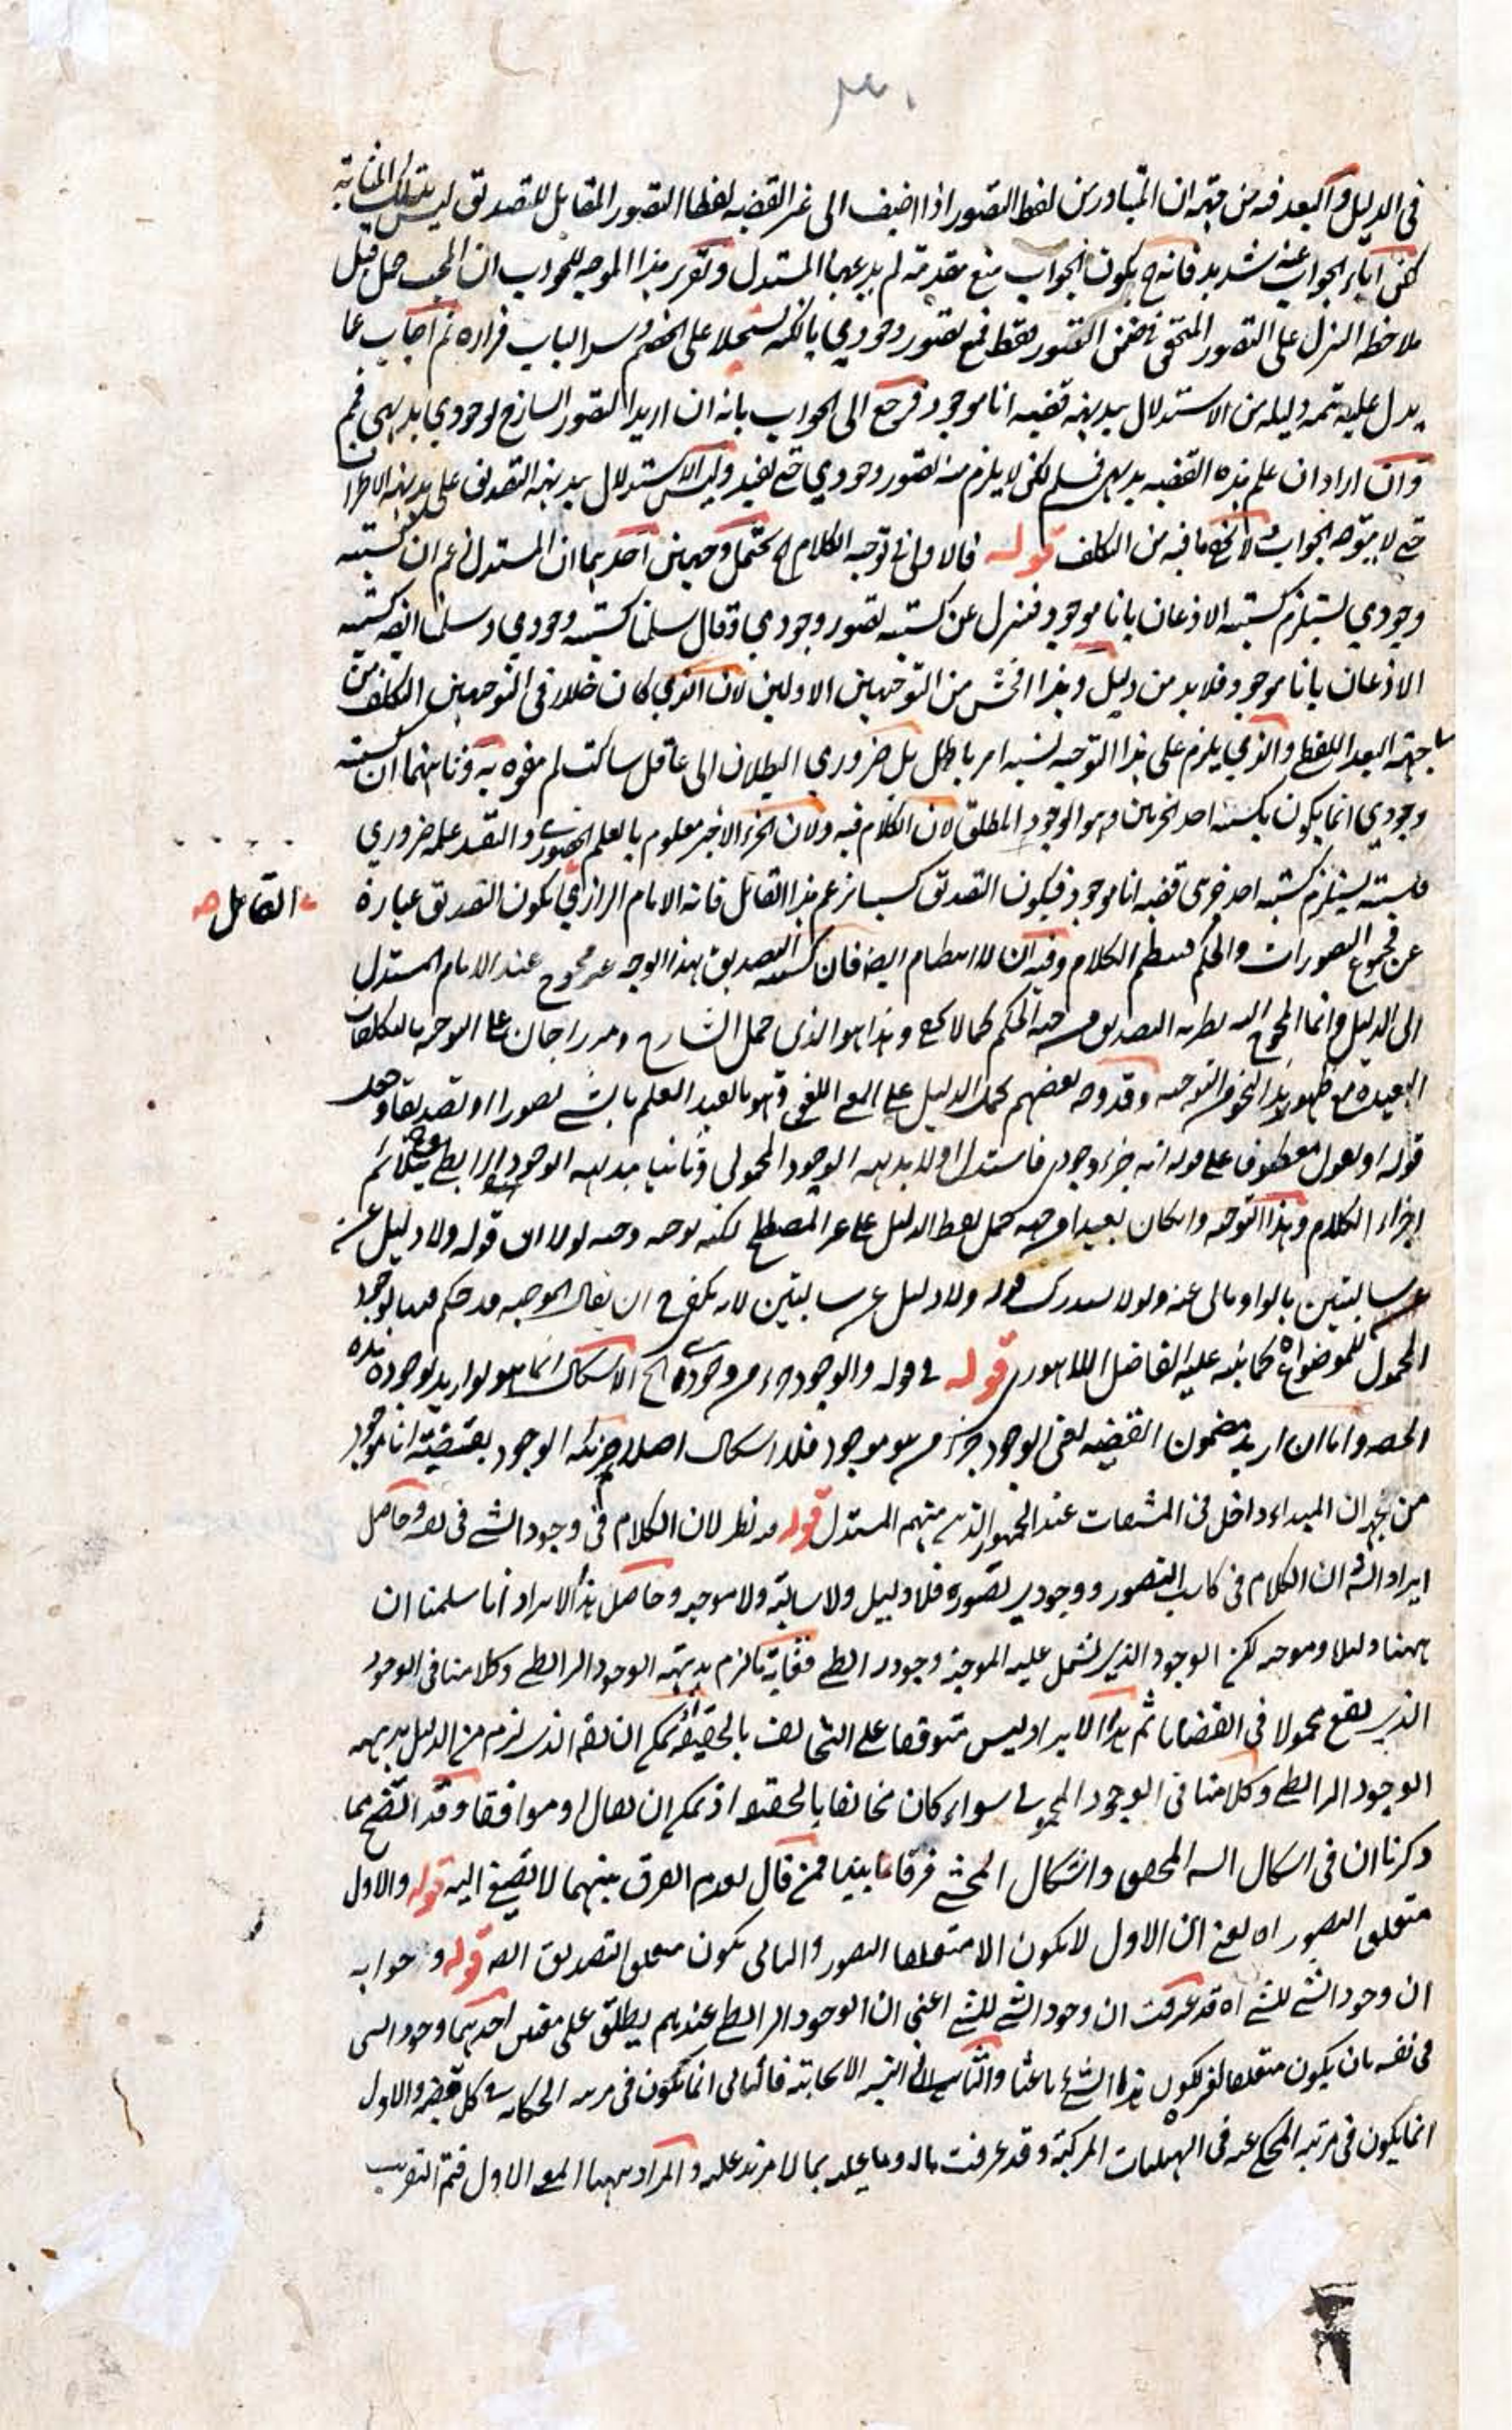 ٣٠
في الدليل والبعد فيه من جهة ان المتبادر من لفظ التصور اذا اضيف الى غير القضية لفظا التصور المقابل للتصديق ليس بتلك المثابة
لكن اباء الجواب عنه شديد فانه ح يكون الجواب منع مقدمة لم يدعها المستدل وتقرير هذا الموجه للجواب ان المجيب حمل قبل
ملاحظة التنزل على التصور المتحقق في ضمن التصور فقط فمنع تصور وجودي بالكنه تسجيلا على الخصم وسد الباب فراره ثم اجاب عما
يدل عليه تتمة دليله من الاستدلال ببديهة قضية انا موجود فرجع الى الجواب بانه ان اريد التصور الساذج لوجودي بديهي فمم
وان اراد ان علم هذه القضية بديهي فسلم لكن لا يلزم منه تصور وجودي حتى يفيد وليس الاستدلال ببديهة التصديق على بديهة الاطراف
حتى لا يتوجه الجواب ولا يخفى ما فيه من التكلف قوله فالاولى في توجيه الكلام ح يحتمل وجهين احدهما ان المستدل زعم ان كسبية
وجودي يستلزم كسبية الاذعان بانا موجود فتنزل عن كسبية تصور وجودي وقال سلمنا كسبية وجودي وسلمنا ايضا كسبية
الاذعان بانا موجود فلا بد من دليل وهذا افحش من التوجيهين الاولين لان الذي كان خللا في التوجيهين التكلف من
جهة البعد اللفظي والذي يلزم على هذا التوجيه نسبة امر باطل بل ضروري البطلان الى عاقل ساكت لم يفوه به وثانيهما ان كسبية
وجودي انما يكون بكسبية احد الجزئين وهو الوجود المطلق لان الكلام فيه ولان الجزء الاخير معلوم بالعلم الحضوري والتقييد علمه ضروري
فكسبيته يستلزم كسبية احد جزئي قضية انا موجود فيكون التصديق كسبيا بزعم هذا القائل فانه الامام الرازي يكون التصديق عبارة
القائل صح
عن مجموع التصورات والحكم فينتظم الكلام وفيه ان لا انتظام ايضا فان كسبية التصديق بهذا الوجه غير محوج عند الامام المستدل
الى الدليل وانما المحوج اليه نظرية التصديق من جهة الحكم كما لا يخفى وهذا هو الذي حمل الشارح ومرزاجان على التوجيه بالتكلفات
البعيدة مع ظهور هذا النحو من التوجيه وقد وجه بعضهم بحمل الدليل على المعنى اللغوي وهو ما يفيد العلم بالشيء تصورا او تصديقا وجعل
قوله او نقول معطوفا على قوله انه جزء وجودي فاستدل اولا ببديهة الوجود المحمولي وثانيا ببديهة الوجود الرابطي
اجزاء الكلام وهذا التوجيه وان كان بعيدا من جهة حمل لفظ الدليل على غير المصطلح لكنه توجيه وجيه لولا ان قوله ولا دليل عن
سالبتين بالواو يأبى عنه ولولا يستدرك قوله ولا دليل عن سالبتين لانه يكفي ح ان يقال الموجبة قد حكم فيها بوجود
المحمول للموضوع اه كما نبه عليه الفاضل اللاهوري قوله في قوله والوجود جزء من وجودي الخ الاشكال انما هو لو اريد بوجودي هذه
الحصة واما ان اريد مضمون القضية يعني الوجود جزء من هو موجود فلا اشكال اصلا وجزئية الوجود بقضية انا موجود
من جهة ان المبداء داخل في المشتقات عند الجمهور الذي منهم المستدل قوله فيه نظر لان الكلام في وجود الشيء في نفسه وحاصل
ايراد الش ان الكلام في كاسب التصور ووجودي تصوره فلا دليل ولا سالبة ولا موجبة وحاصل هذا الايراد انا سلمنا ان
ههنا دليلا وموجبة لكن الوجود الذي يشتمل عليه الموجبة وجود رابطي فغاية ما لزم بديهة الوجود الرابطي وكلامنا في الوجود
الذي يقع محمولا في القضايا ثم هذا الايراد ليس متوقفا على التخالف بالحقيقة اذ يمكن ان يقال الذي لزم من الدليل بديهة
الوجود الرابطي وكلامنا في الوجود المحمولي سواء كان مخالفا بالحقيقة اذ يمكن ان يقال او موافقا وقد اتضح مما
ذكرنا ان في اشكال السيد المحقق واشكال المحشي فرقا ما بينا فمن قال بعدم الفرق بينهما لا تصغ اليه قوله والاول
متعلق التصور اه يعني ان الاول لا يكون الا متعلقا للتصور والثاني يكون متعلق التصديق ايضا قوله وجوابه
ان وجود الشيء للشيء اه قد عرفت ان وجود الشيء للشيء اعني ان الوجود الرابطي عندهم يطلق على معنيين احدهما وجود الشيء
في نفسه بان يكون متعلقا لغيره ككون هذا الشيء ناعتا والثاني النسبة الايجابية فالثاني انما يكون في مرتبة الحكاية في كل قضية والاول
انما يكون في مرتبة المحكي عنه في الهليات المركبة وقد عرفت ماله وما عليه بما لا مزيد عليه والمراد ههنا المعنى الاول فتم التقريب